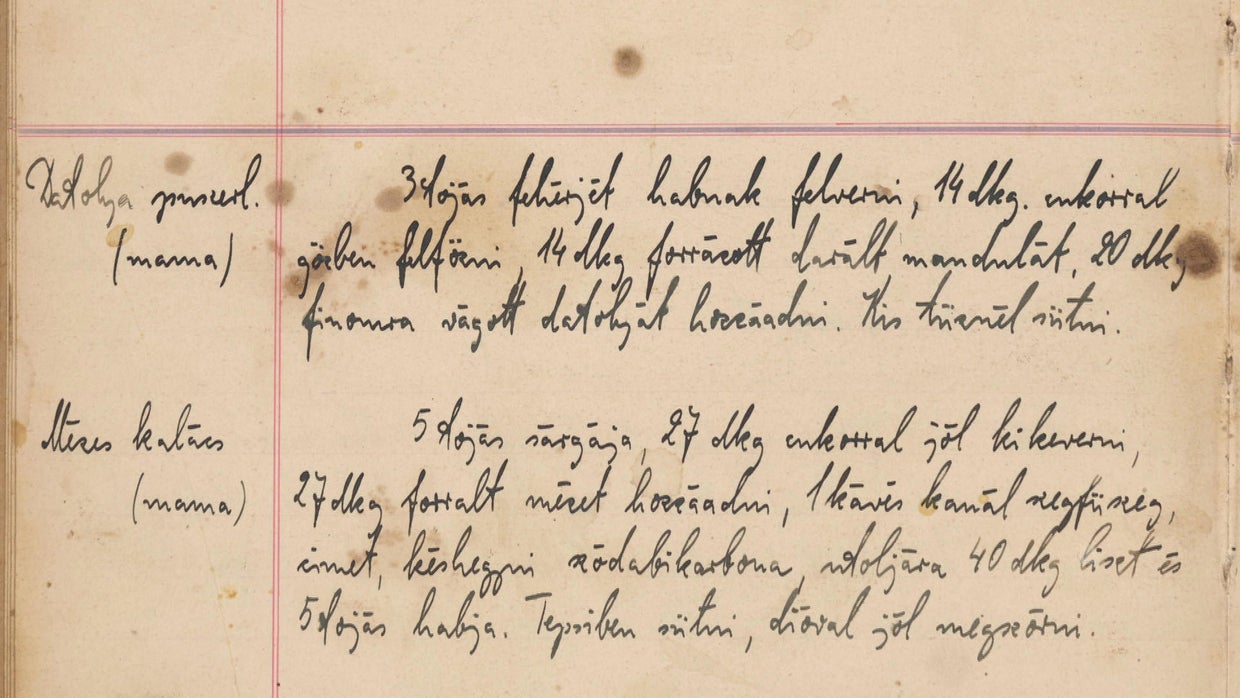 Datolya puszerl.
(mama)
3 tojás fehérjét habnak felverni, 14 dkg. cukorral
gőzben felfőzni, 14 dkg forrázott darált mandulát, 20 dkg
finomra vágott datolyát hozzáadni. Kis tűznél sütni.
Mézes kalács
(mama)
5 tojás sárgája, 27 dkg cukorral jól kikeverni,
27 dkg forralt mézet hozzáadni, 1 kávés kanál szegfűszeg,
cimet, késhegyni szódabikarbona, utoljára 40 dkg liszt és
5 tojás habja. Tepsiben sütni, dióval jól megszórni.